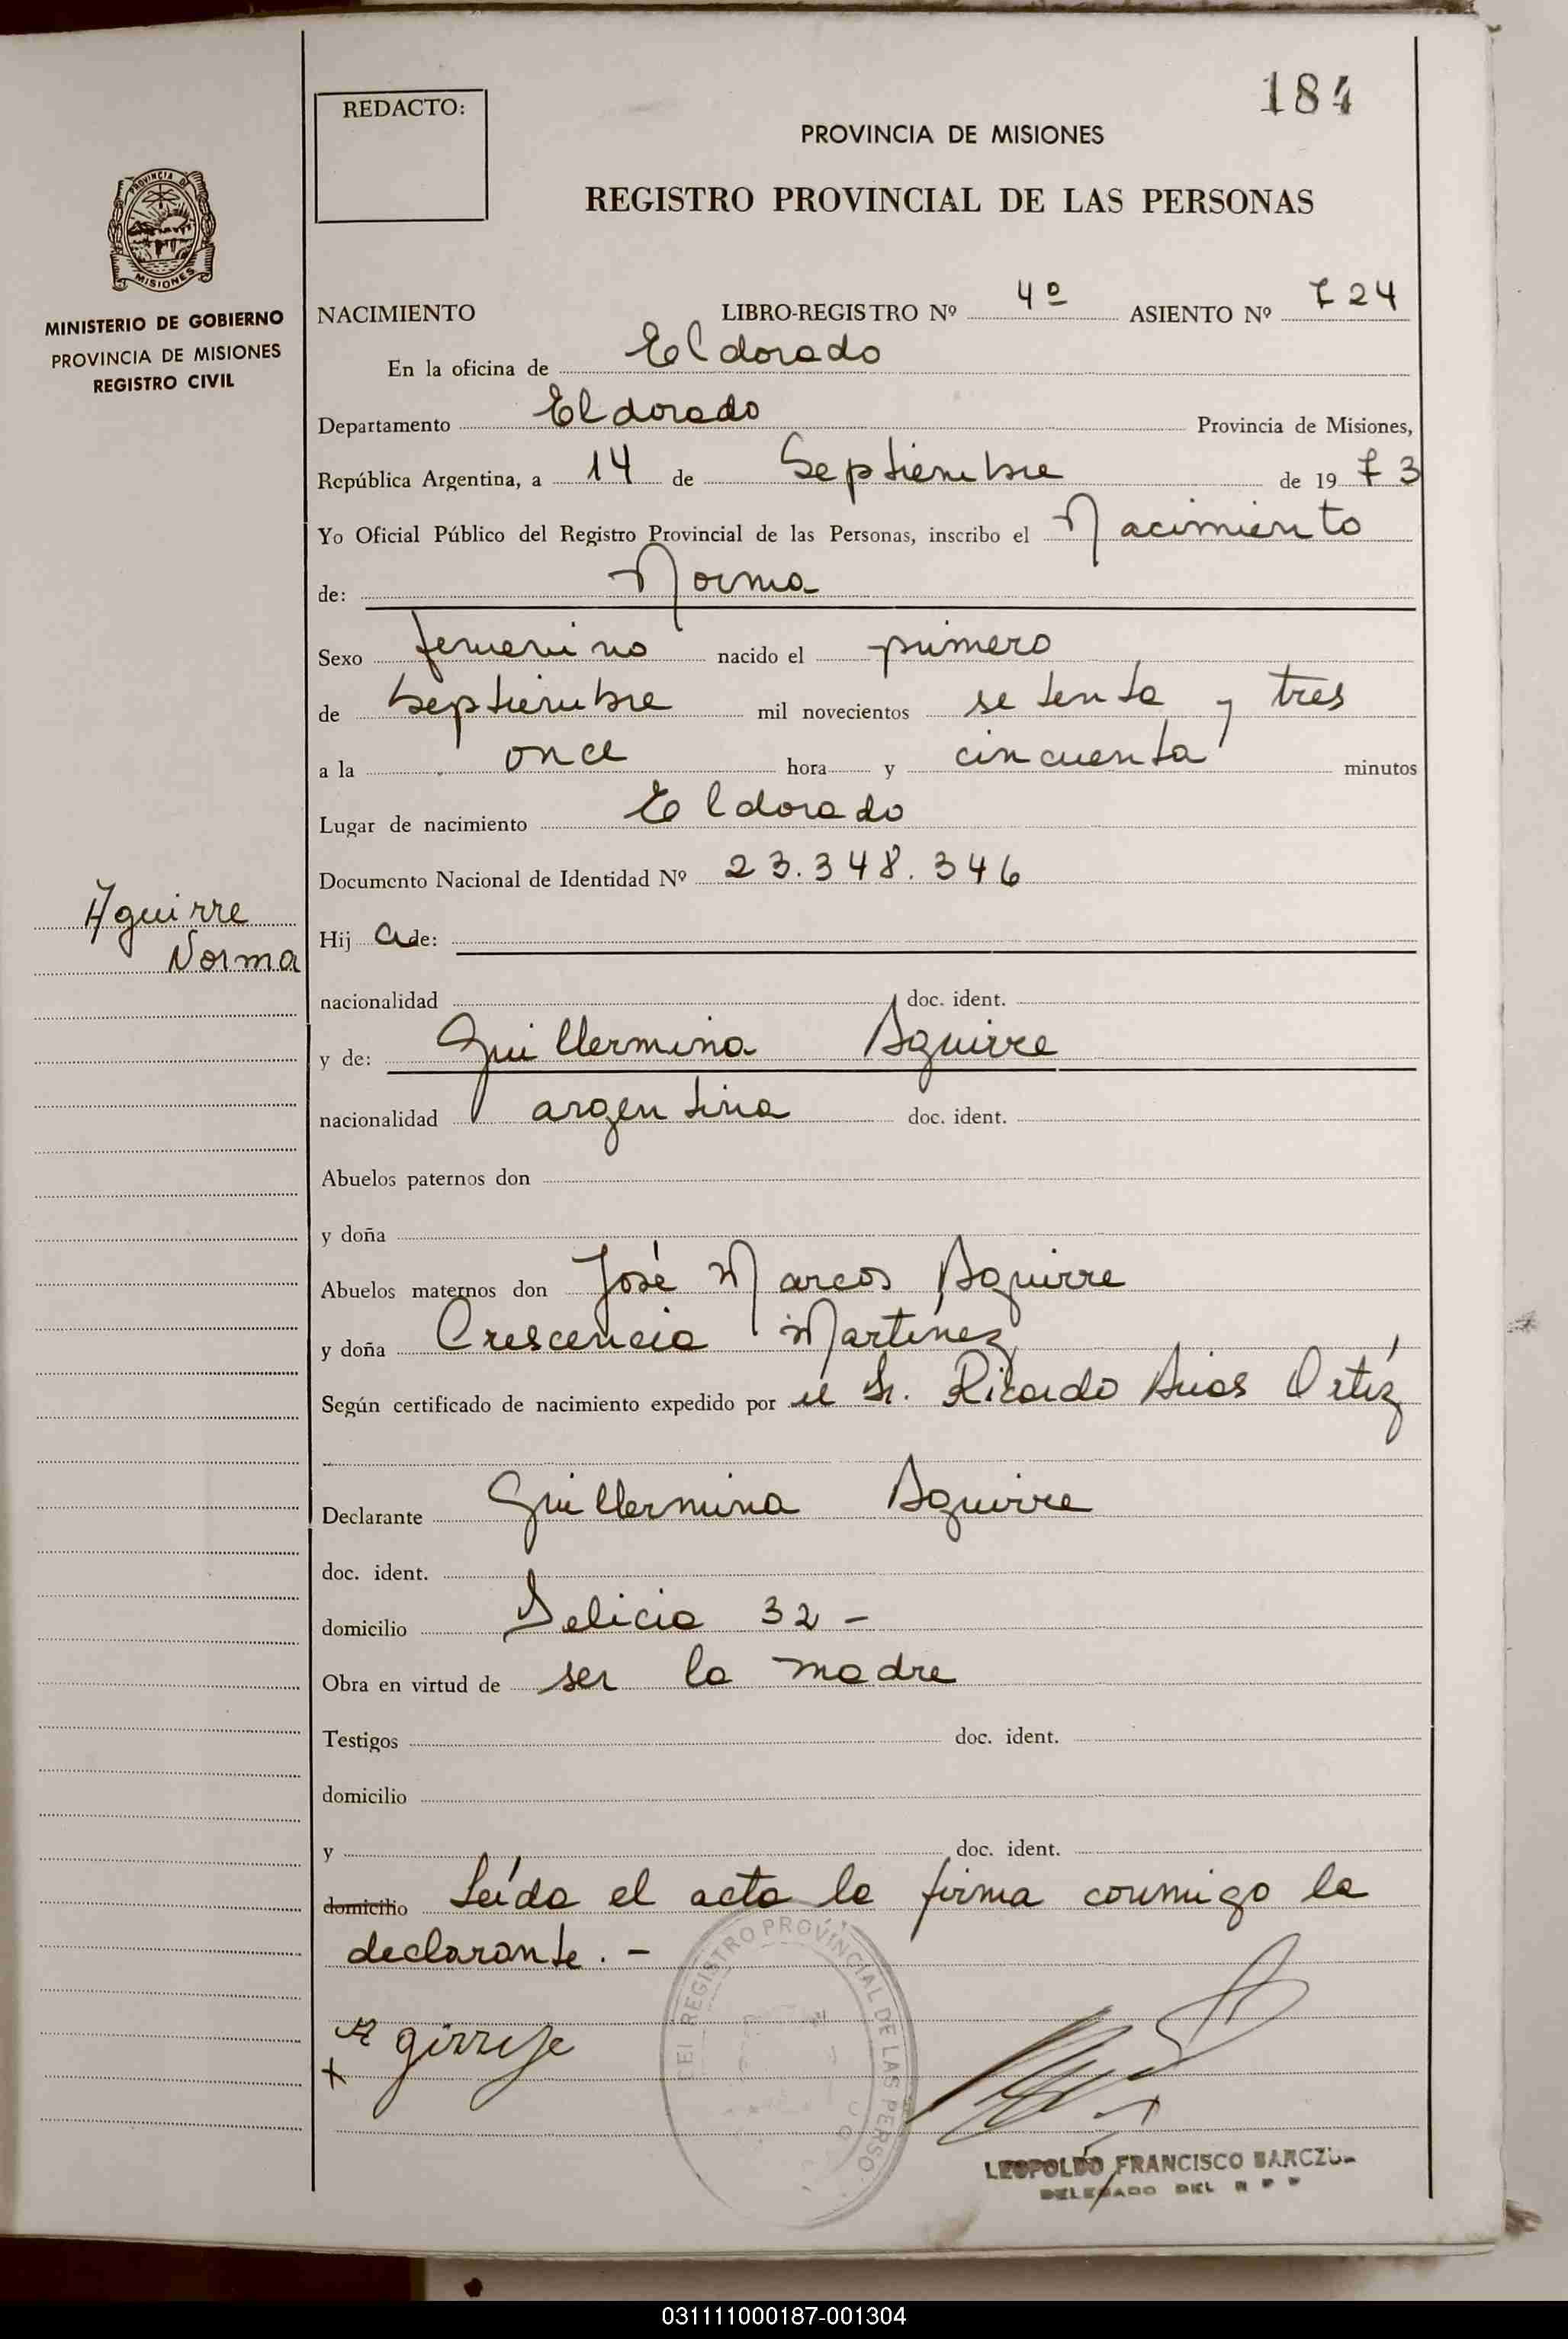 184
REDACTO:
PROVINCIA DE MISIONES
REGISTRO PROVINCIAL DE LAS PERSONAS
PROVINCIA DE
MISIONES
MINISTERIO DE GOBIERNO
PROVINCIA DE MISIONES
REGISTRO CIVIL
NACIMIENTO LIBRO-REGISTRO Nº 4º ASIENTO Nº 724
En la oficina de Eldorado
Departamento Eldorado Provincia de Misiones,
República Argentina, a 14 de Septiembre de 1973
Yo Oficial Público del Registro Provincial de las Personas, inscribo el Nacimiento
de: Norma
Sexo femenino nacido el primero
de Septiembre mil novecientos setenta y tres
a la once hora y cincuenta minutos
Lugar de nacimiento Eldorado
Documento Nacional de Identidad Nº 23.348.346
Aguirre
Norma
Hija de:
nacionalidad doc. ident.
y de: Guillermina Aguirre
nacionalidad argentina doc. ident.
Abuelos paternos don
y doña
Abuelos maternos don José Marcos Aguirre
y doña Crescencia Martínez
Según certificado de nacimiento expedido por el Dr. Ricardo Arias Ortíz
Declarante Guillermina Aguirre
doc. ident.
domicilio Delicia 32 -
Obra en virtud de ser la madre
Testigos doc. ident.
domicilio
y doc. ident.
domicilio Leída el acta la firma conmigo la
declarante. -
REGISTRO PROVINCIAL DE LAS PERSO
LEOPOLDO FRANCISCO
DELEGADO DEL R P P
031111000187-001304